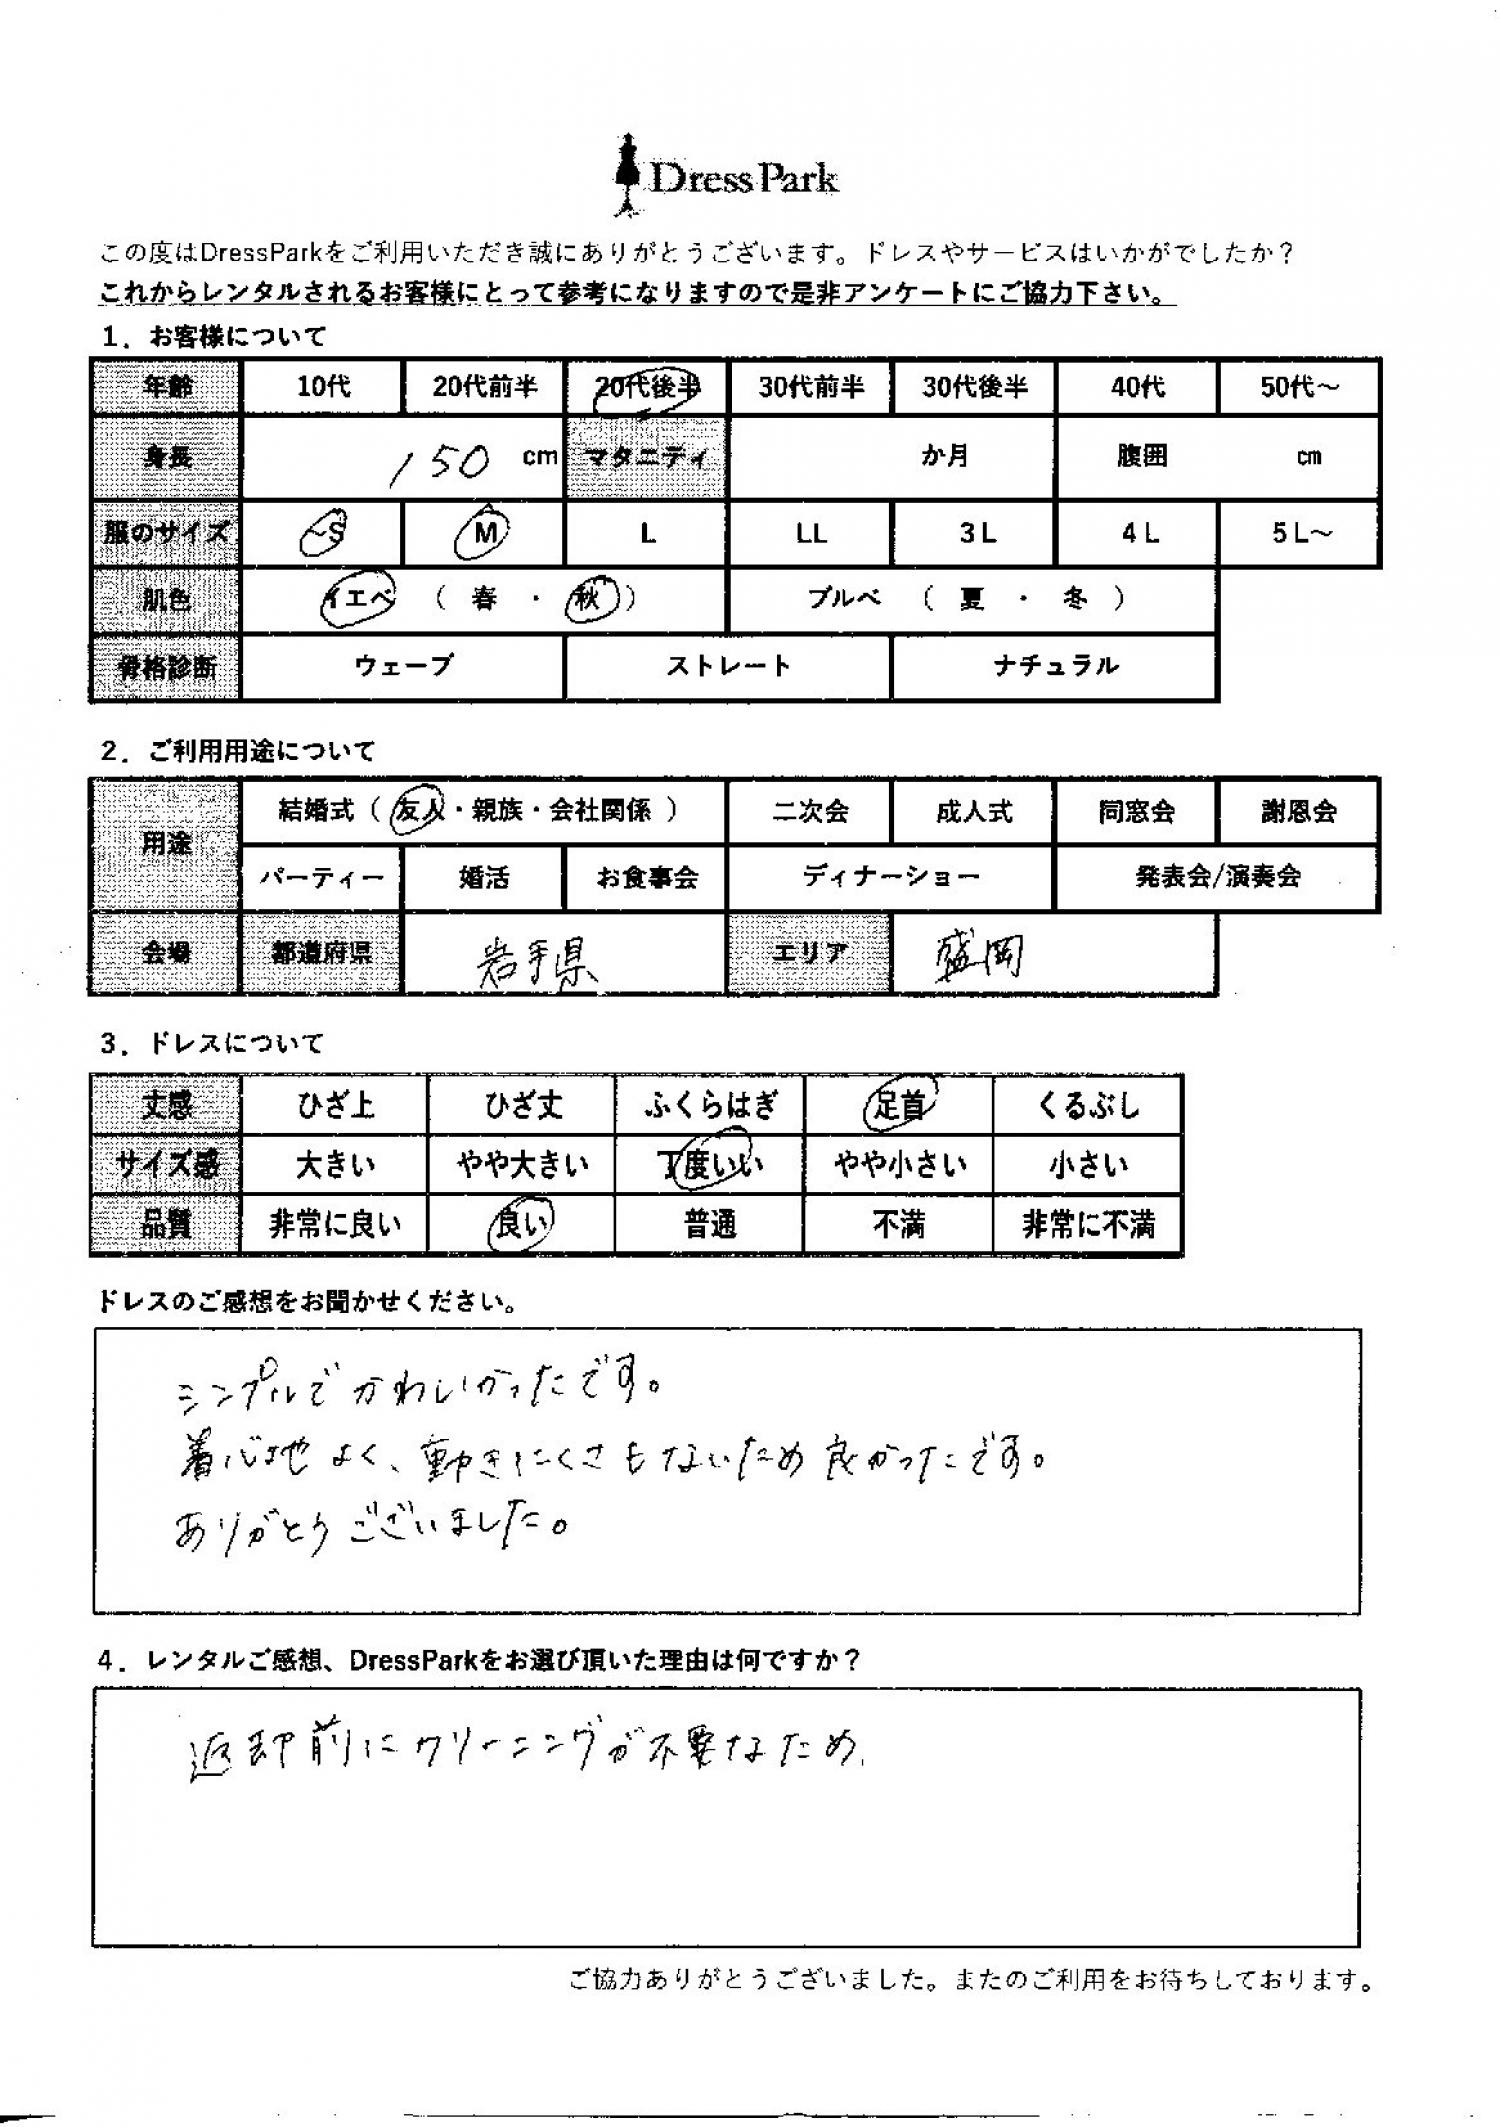 Dress Park
この度はDressParkをご利用いただき誠にありがとうございます。ドレスやサービスはいかがでしたか？
これからレンタルされるお客様にとって参考になりますので是非アンケートにご協力下さい。
1．お客様について
年齢 10代 20代前半 20代後半 30代前半 30代後半 40代 50代～
身長 150 cm マタニティ か月 腹囲 cm
服のサイズ ~S M L LL 3L 4L 5L～
肌色 イエベ （ 春 ・ 秋 ） ブルベ （ 夏 ・ 冬 ）
骨格診断 ウェーブ ストレート ナチュラル
2．ご利用用途について
用途 結婚式（ 友人・親族・会社関係 ） 二次会 成人式 同窓会 謝恩会
パーティー 婚活 お食事会 ディナーショー 発表会/演奏会
会場 都道府県 岩手県 エリア 盛岡
3．ドレスについて
丈感 ひざ上 ひざ丈 ふくらはぎ 足首 くるぶし
サイズ感 大きい やや大きい 丁度いい やや小さい 小さい
品質 非常に良い 良い 普通 不満 非常に不満
ドレスのご感想をお聞かせください。
シンプルでかわいかったです。
着心地よく、動きにくさもないため良かったです。
ありがとうございました。
4．レンタルご感想、DressParkをお選び頂いた理由は何ですか？
返却前にクリーニングが不要なため.
ご協力ありがとうございました。またのご利用をお待ちしております。